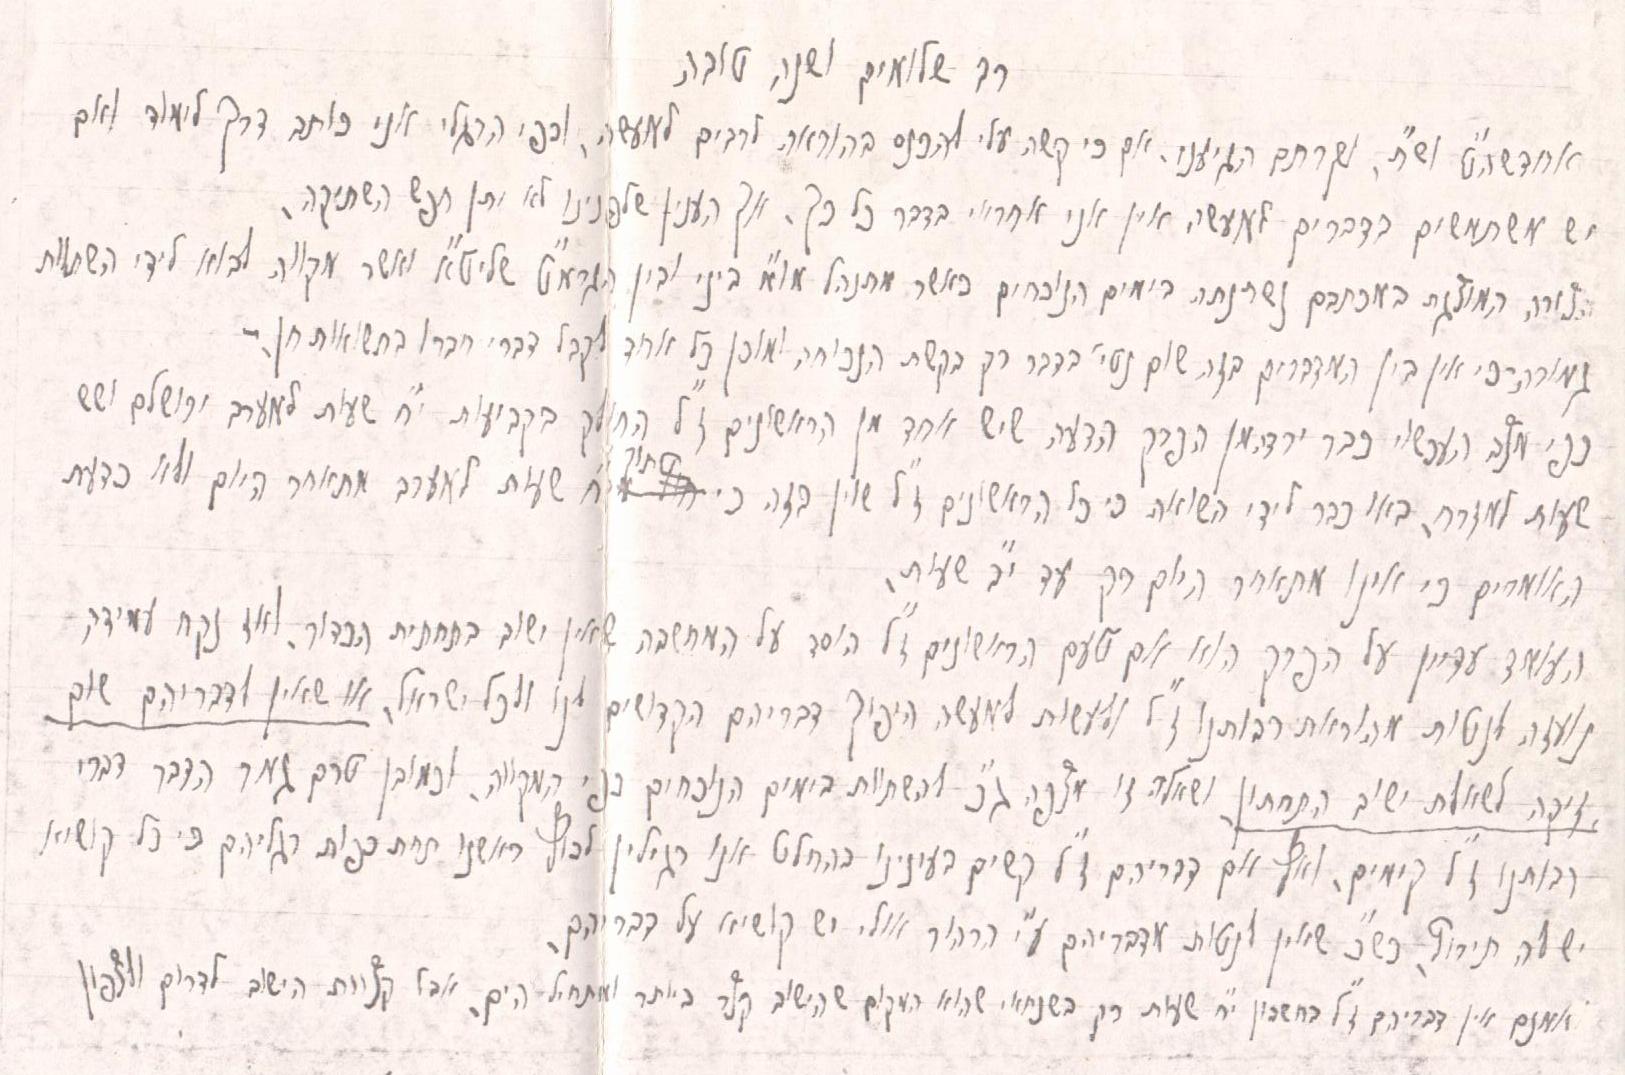 רב שלומים ושנה טובה
אחדשה"ט וש"ת, יקרתם הגיעני. אם כי קשה עלי להכנס בהוראה לרבים למעשה, וכפי הרגלי אני כותב דרך לימוד ואם
יש משתמשים בדברים למעשה אין אני אחראי בדבר כל כך, אך הענין שלפנינו לא יתן חפש השתיקה,
הצורה המוצגת במכתבם נשתנתה בימים הנוכחים כאשר מתנהל מו"מ ביני ובין הגרמ"ט שליט"א ואשר מקווה לבוא לידי השתוות
גמורה כי אין בין המדברים בזה שום נטי' בדבר רק בקשת הנכוחה ומוכן כל אחד לקבל דברי חברו בתשואות חן,-
כפי מצב העכשוי כבר ירדה מן הפרק הדעה שיש אחד מן הראשונים ז"ל החולק בקביעות י"ח שעות למערב ירושלם ושש
שעות למזרח, באו כבר לידי השואה כי כל הראשונים ז"ל שוין בזה כי בתוך י"ח שעות למערב מתאחר היום ולא כדעת
האומרים כי אינו מתאחר היום רק עד י"ב שעות,
העומד עדיין על הפרק הוא אם טעם הראשונים ז"ל הוסד על המחשבה שאין ישוב בתחתית הכדור, ואז נקח עמידה
נועזה לנטות מהוראת רבותנו ז"ל ולעשות למעשה היפוך דבריהם הקדושים לנו ולכל ישראל, או שאין לדבריהם שום
זיקה לשאלת ישוב התחתון, ושאלה זו מצפה ג"כ להשתוות בימים הנוכחים כפי המקווה, וכמובן טרם גמר הדבר דברי
רבותנו ז"ל קימים, ואף אם דבריהם ז"ל קשים בעינינו בהחלט אנו רגילין לכוף ראשנו תחת כפות רגליהם כי כל קושיא
יש לה תירוץ, כש"כ שאין לנטות מדבריהם ע"י הרהור אולי יש קושיא על דבריהם,
אמנם אין דבריהם ז"ל בחשבון י"ח שעות רק בשנחאי שהוא המקום שהישוב קצר ביותר ומתחיל הים, אבל קצוות הישוב לדרום ולצפון